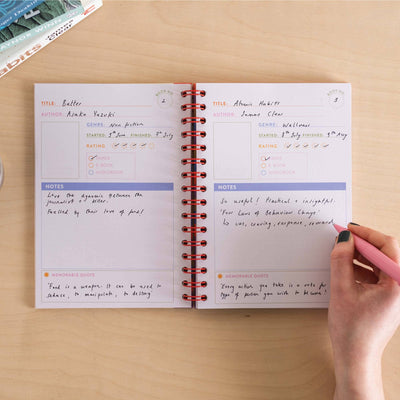 TITLE: Butter
AUTHOR: Asako Yuzuki
GENRE: Non fiction
STARTED: 5th June FINISHED: 3rd July
RATING
PAGE
E-BOOK
AUDIOBOOK
NOTES
Love the dynamic between the
journalist + killer.
Fuelled by their love of food
MEMORABLE QUOTE
"Food is a weapon. It can be used to
seduce, to manipulate, to destroy"
BOOK NO.
3
TITLE: Atomic Habits
AUTHOR: James Clear
GENRE: Wellness
STARTED: 8th July FINISHED: 9th Aug
RATING
E-BOOK
AUDIOBOOK
NOTES
So useful! Practical + insightful.
'Four Laws of Behaviour Change'
↳ cue, craving, response, reward
MEMORABLE QUOTE
"Every action you take is a vote for the
type of person you wish to become"